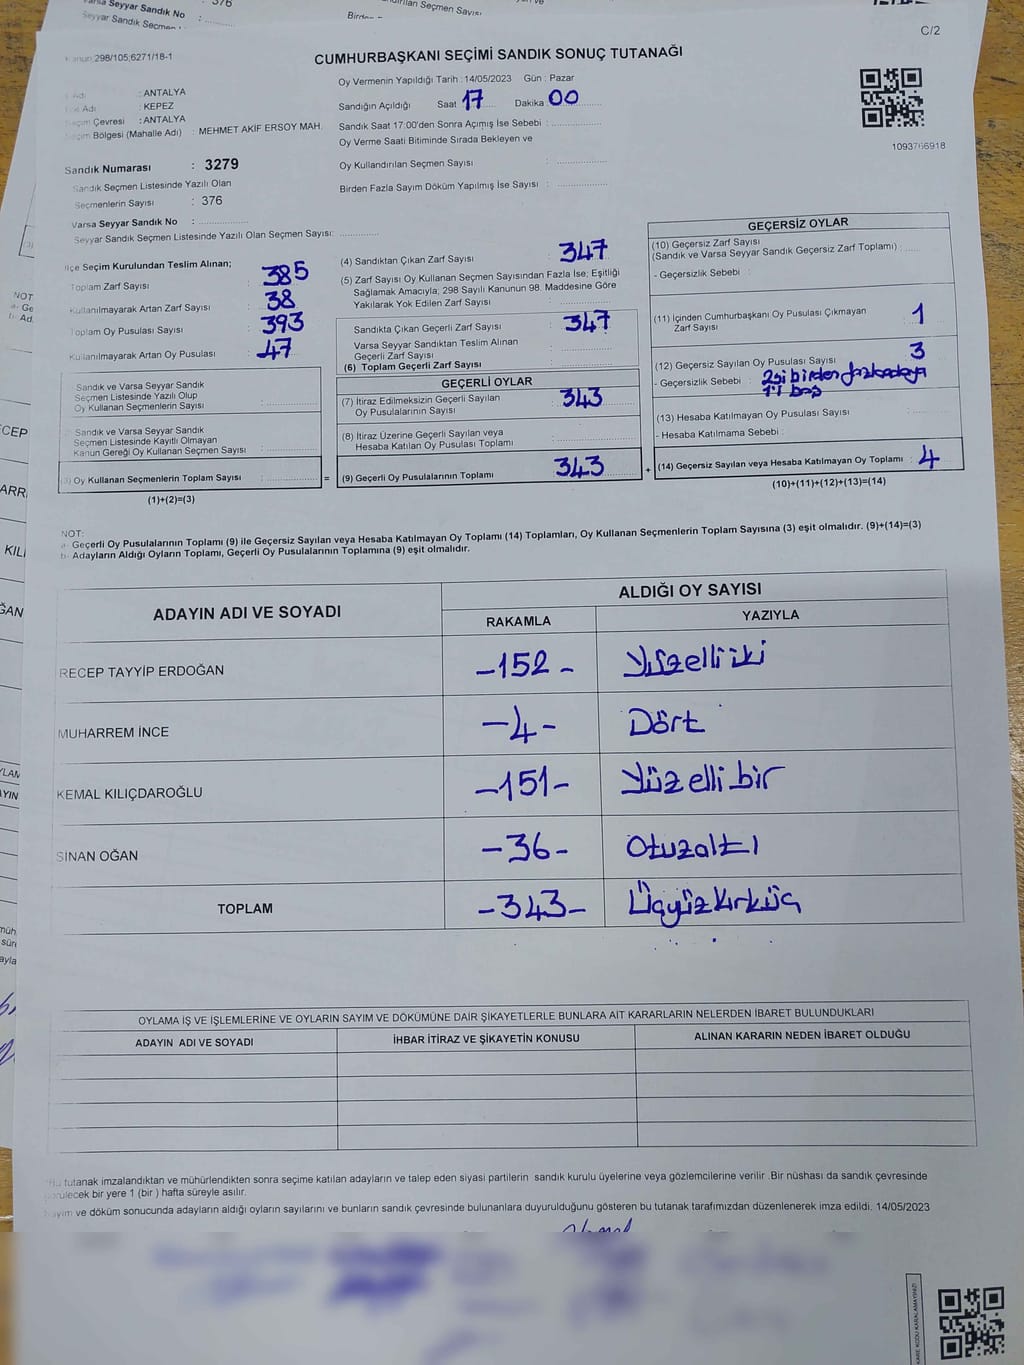 Varsa Seyyar Sandık No
Seyyar Sandık
Seçmen Sayısı
C/2
298/105;6271/18-1
CUMHURBAŞKANI SEÇİMİ SANDIK SONUÇ TUTANAĞI
Oy Vermenin Yapıldığı Tarih : 14/05/2023 Gün : Pazar
Adı : ANTALYA
Adı : KEPEZ
Çevresi : ANTALYA
Bölgesi (Mahalle Adı) : MEHMET AKİF ERSOY MAH.
Sandığın Açıldığı Saat 17 Dakika 00
Sandık Saat 17:00'den Sonra Açımış İse Sebebi :
Oy Verme Saati Bitiminde Sırada Bekleyen ve
Oy Kullandırılan Seçmen Sayısı :
Birden Fazla Sayım Döküm Yapılmış İse Sayısı :
1093766918
Sandık Numarası : 3279
Sandık Seçmen Listesinde Yazılı Olan
Seçmenlerin Sayısı : 376
Varsa Seyyar Sandık No :
Seyyar Sandık Seçmen Listesinde Yazılı Olan Seçmen Sayısı:
İlçe Seçim Kurulundan Teslim Alınan;
Toplam Zarf Sayısı : 385
Kullanılmayarak Artan Zarf Sayısı : 38
Toplam Oy Pusulası Sayısı : 393
Kullanılmayarak Artan Oy Pusulası : 47
Sandık ve Varsa Seyyar Sandık
Seçmen Listesinde Yazılı Olup
Oy Kullanan Seçmenlerin Sayısı :
Sandık ve Varsa Seyyar Sandık
Seçmen Listesinde Kayıtlı Olmayan
Kanun Gereği Oy Kullanan Seçmen Sayısı :
Oy Kullanan Seçmenlerin Toplam Sayısı :
(1)+(2)=(3)
=
(4) Sandıktan Çıkan Zarf Sayısı : 347
(5) Zarf Sayısı Oy Kullanan Seçmen Sayısından Fazla İse; Eşitliği
Sağlamak Amacıyla, 298 Sayılı Kanunun 98. Maddesine Göre
Yakılarak Yok Edilen Zarf Sayısı :
Sandıkta Çıkan Geçerli Zarf Sayısı : 347
Varsa Seyyar Sandıktan Teslim Alınan
Geçerli Zarf Sayısı :
(6) Toplam Geçerli Zarf Sayısı :
GEÇERLİ OYLAR
(7) İtiraz Edilmeksizin Geçerli Sayılan
Oy Pusulalarının Sayısı : 343
(8) İtiraz Üzerine Geçerli Sayılan veya
Hesaba Katılan Oy Pusulası Toplamı :
(9) Geçerli Oy Pusulalarının Toplamı : 343
+
GEÇERSİZ OYLAR
(10) Geçersiz Zarf Sayısı
(Sandık ve Varsa Seyyar Sandık Geçersiz Zarf Toplamı) :
- Geçersizlik Sebebi :
(11) İçinden Cumhurbaşkanı Oy Pusulası Çıkmayan
Zarf Sayısı : 1
(12) Geçersiz Sayılan Oy Pusulası Sayısı : 3
- Geçersizlik Sebebi : 2si birden fazla
1'i boş
(13) Hesaba Katılmayan Oy Pusulası Sayısı :
- Hesaba Katılmama Sebebi :
(14) Geçersiz Sayılan veya Hesaba Katılmayan Oy Toplamı : 4
(10)+(11)+(12)+(13)=(14)
NOT:
a- Geçerli Oy Pusulalarının Toplamı (9) ile Geçersiz Sayılan veya Hesaba Katılmayan Oy Toplamı (14) Toplamları, Oy Kullanan Seçmenlerin Toplam Sayısına (3) eşit olmalıdır. (9)+(14)=(3)
b- Adayların Aldığı Oyların Toplamı, Geçerli Oy Pusulalarının Toplamına (9) eşit olmalıdır.
ADAYIN ADI VE SOYADI
ALDIĞI OY SAYISI
RAKAMLA
YAZIYLA
RECEP TAYYİP ERDOĞAN -152- Yüzelliiki
MUHARREM İNCE -4- Dört
KEMAL KILIÇDAROĞLU -151- Yüzellibir
SİNAN OĞAN -36- Otuzaltı
TOPLAM -343- Üçyüzkırküç
OYLAMA İŞ VE İŞLEMLERİNE VE OYLARIN SAYIM VE DÖKÜMÜNE DAİR ŞİKAYETLERLE BUNLARA AİT KARARLARIN NELERDEN İBARET BULUNDUKLARI
ADAYIN ADI VE SOYADI
İHBAR İTİRAZ VE ŞİKAYETİN KONUSU
ALINAN KARARIN NEDEN İBARET OLDUĞU
Bu tutanak imzalandıktan ve mühürlendikten sonra seçime katılan adayların ve talep eden siyasi partilerin sandık kurulu üyelerine veya gözlemcilerine verilir .Bir nüshası da sandık çevresinde
görülecek bir yere 1 (bir ) hafta süreyle asılır.
Sayım ve döküm sonucunda adayların aldığı oyların sayılarını ve bunların sandık çevresinde bulunanlara duyurulduğunu gösteren bu tutanak tarafımızdan düzenlenerek imza edildi. 14/05/2023
KARE KODU KARALAMAYINIZ!